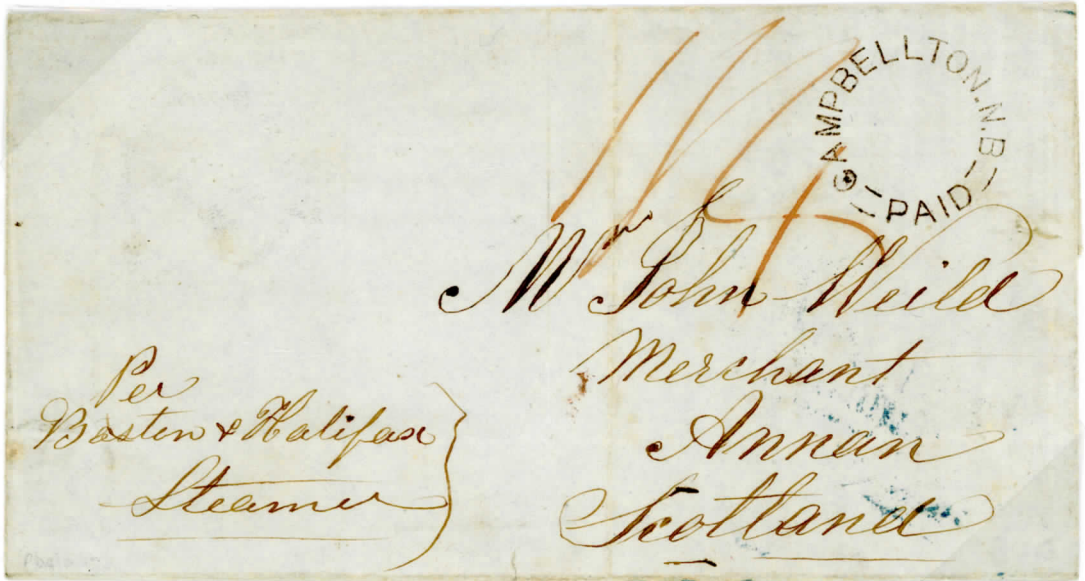 CAMPBELLTON.N.B
PAID
Mr John Weild
Merchant
Annan
Scotland
Per
Boston & Halifax
Steamer